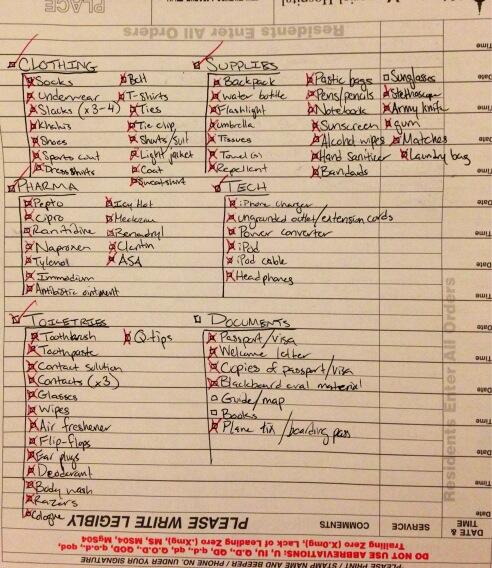 PLACE
Residents Enter All Orders
CLOTHING
Socks
Underwear
Slacks (x3-4)
Khakis
Shoes
Sports coat
Dress shirts
Belt
T-Shirts
Ties
Tie clip
Shorts/suit
Light jacket
Coat
Sweatshirt
SUPPLIES
Backpack
Water bottle
Flashlight
Umbrella
Tissues
Towel(s)
Repellent
Plastic bags
Pens/pencils
Notebook
Sunscreen
Alcohol wipes
Hand Sanitizer
Bandaids
Sunglasses
Stethoscope
Army knife
gum
Matches
Laundry bag
PHARMA
Pepto
Cipro
Ranitidine
Naproxen
Tylenol
Immodium
Antibiotic ointment
Icy Hot
Benadryl
Claritin
ASA
TECH
iPhone charger
ungrounded outlet/extension cords
Power converter
iPod
iPod cable
Headphones
TOILETRIES
Toothbrush
Toothpaste
Contact solution
Contacts (x3)
Glasses
Wipes
Air freshener
Flip-Flops
Ear plugs
Deodorant
Body wash
Razors
Cologne
Q-tips
DOCUMENTS
Passport/visa
Welcome letter
Copies of passport/visa
Blackboard eval material
Guide/map
Books
Plane tix/boarding pass
Residents Enter All Orders
Time
Date
Time
Date
Time
Date
Time
Date
Time
Date
Time
Date
Time
Date
DATE & TIME
SERVICE
COMMENTS
PLEASE WRITE LEGIBLY
DO NOT USE ABBREVIATIONS: U, IU, Q.D, QD, q.d., qd, Q.O.D., QOD, q.o.d., qod,
Trailing Zero (X.0mg), Lack of Leading Zero (.Xmg), MS, MSO4, MgSO4
PLEASE SIGN / PRINT / STAMP / AND BEEPER / PHONE NO. UNDER YOUR SIGNATURE